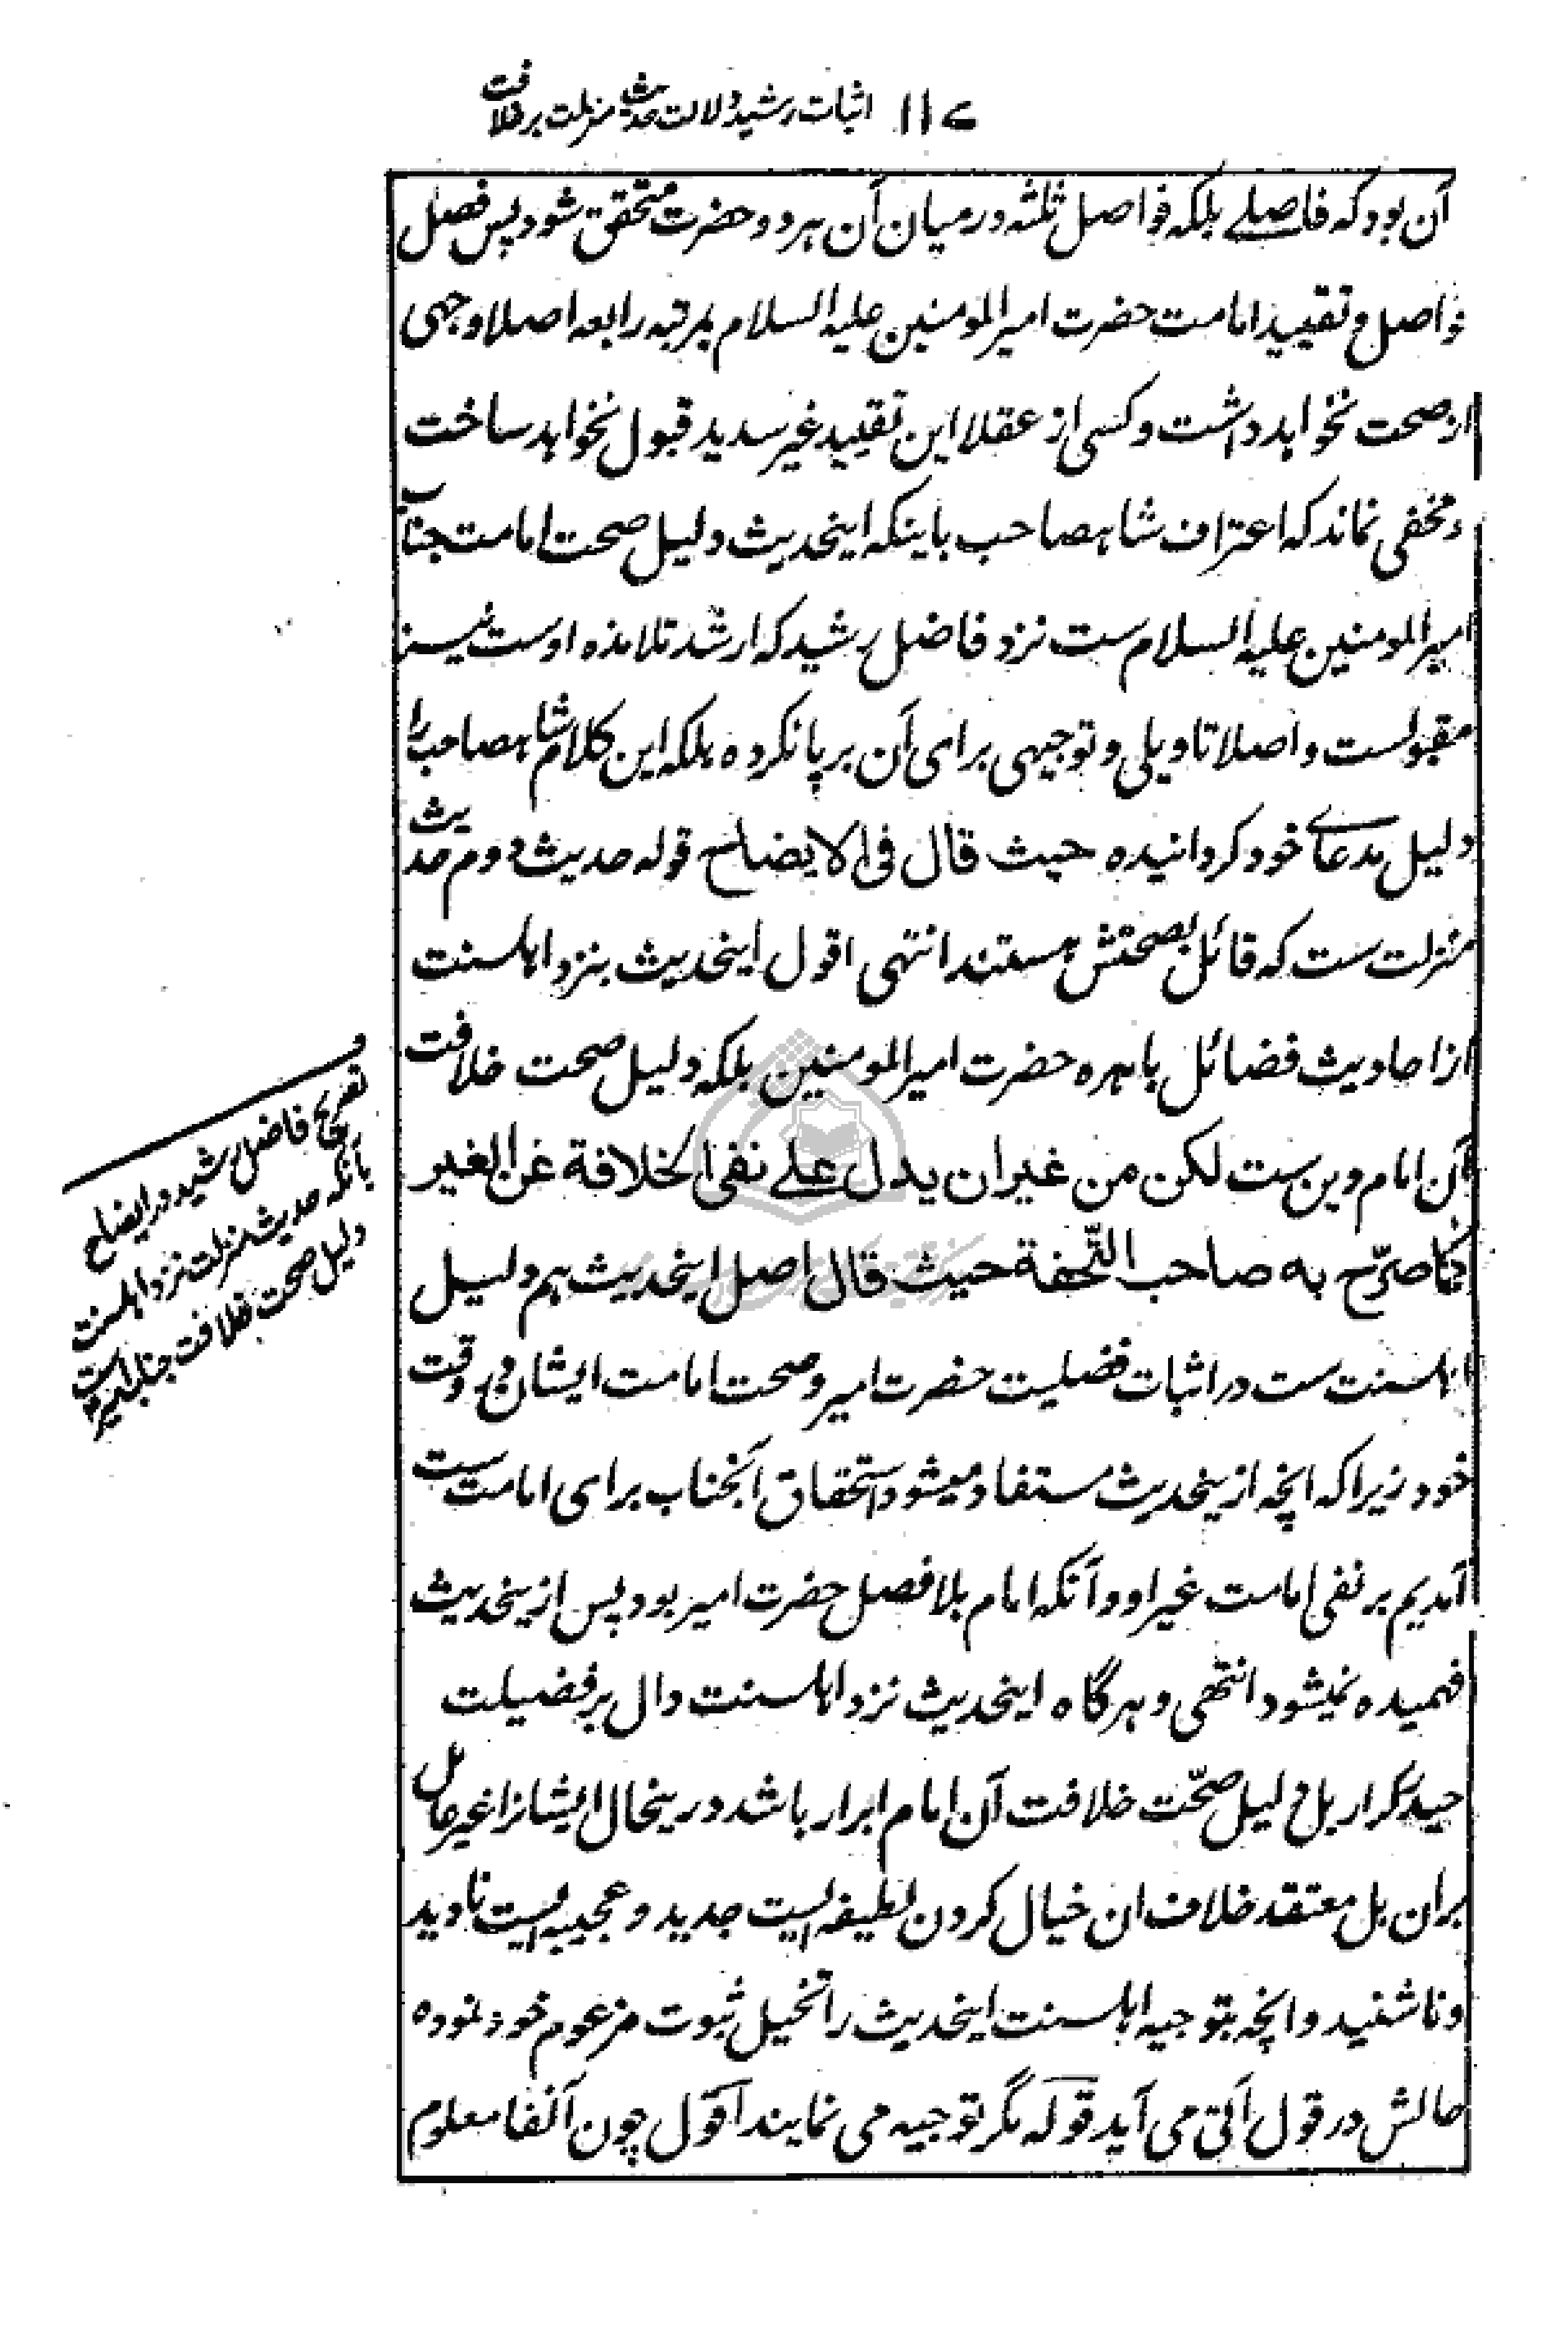 ۱۱۷ اثبات رشید دلالت حدیث منزلت بر خلافت
آن بود که فاصلے بلکه فواصل ثلثه درمیان آن هر دو حضرت متحقق شود پس فصل
فواصل و تقیید امامت حضرت امیرالمومنین علیه السلام بمرتبه رابعه اصلا وجهی
از صحت نخواهد داشت و کسی از عقلا این تقیید غیر سدید قبول نخواهد ساخت
و مخفی نماند که اعتراف شاهصاحب باینکه اینحدیث دلیل صحت امامت جناب
امیرالمومنین علیه السلام ست نزد فاضل رشید که ارشد تلامذه اوست نیز
مقبولست و اصلا تاویلی و توجیهی برای آن برپا نکرده بلکه این کلام شاهصاحب را
دلیل مدعاے خود گردانیده حیث قال فی الایضاح قوله حدیث دوم حدیث
منزلت ست که قائل بصحتش هستند انتهی اقول اینحدیث بنزد اهلسنت
از احادیث فضائل باهره حضرت امیرالمومنین بلکه دلیل صحت خلافت
آن امام دین ست لکن من غیر ان یدل علے نفی الخلافة عن الغیر
کما صرّح به صاحب التّحفة حیث قال اصل اینحدیث هم دلیل
اهلسنت ست در اثبات فضلیت حضرت امیر و صحت امامت ایشان در وقت
خود زیرا که انچه ازینحدیث مستفاد میشود استحقاق آنجناب برای امامت ست
آمدیم بر نفی امامت غیر او و آنکه امام بلا فصل حضرت امیر بود پس ازینحدیث
فهمیده نمیشود انتهی و هرگاه اینحدیث نزد اهلسنت دال بر فضیلت
حیدر کرار بل دلیل صحّت خلافت آن امام ابرار باشد درینحال ایشانرا غیر عامل
بران بل معتقد خلاف ان خیال کردن لطیفه ایست جدید و عجیبه ایست نادید
و ناشنید و انچه بتوجیه اهلسنت اینحدیث را تخیل ثبوت مزعوم خود نموده
حالش در قول آتی می آید قوله مگر توجیه می نمایند اقول چون آنفا معلوم
تصریح فاضل رشید در ایضاح
بآنکه حدیث منزلت نزد اهلسنت
دلیل صحت خلافت جناب امیر است